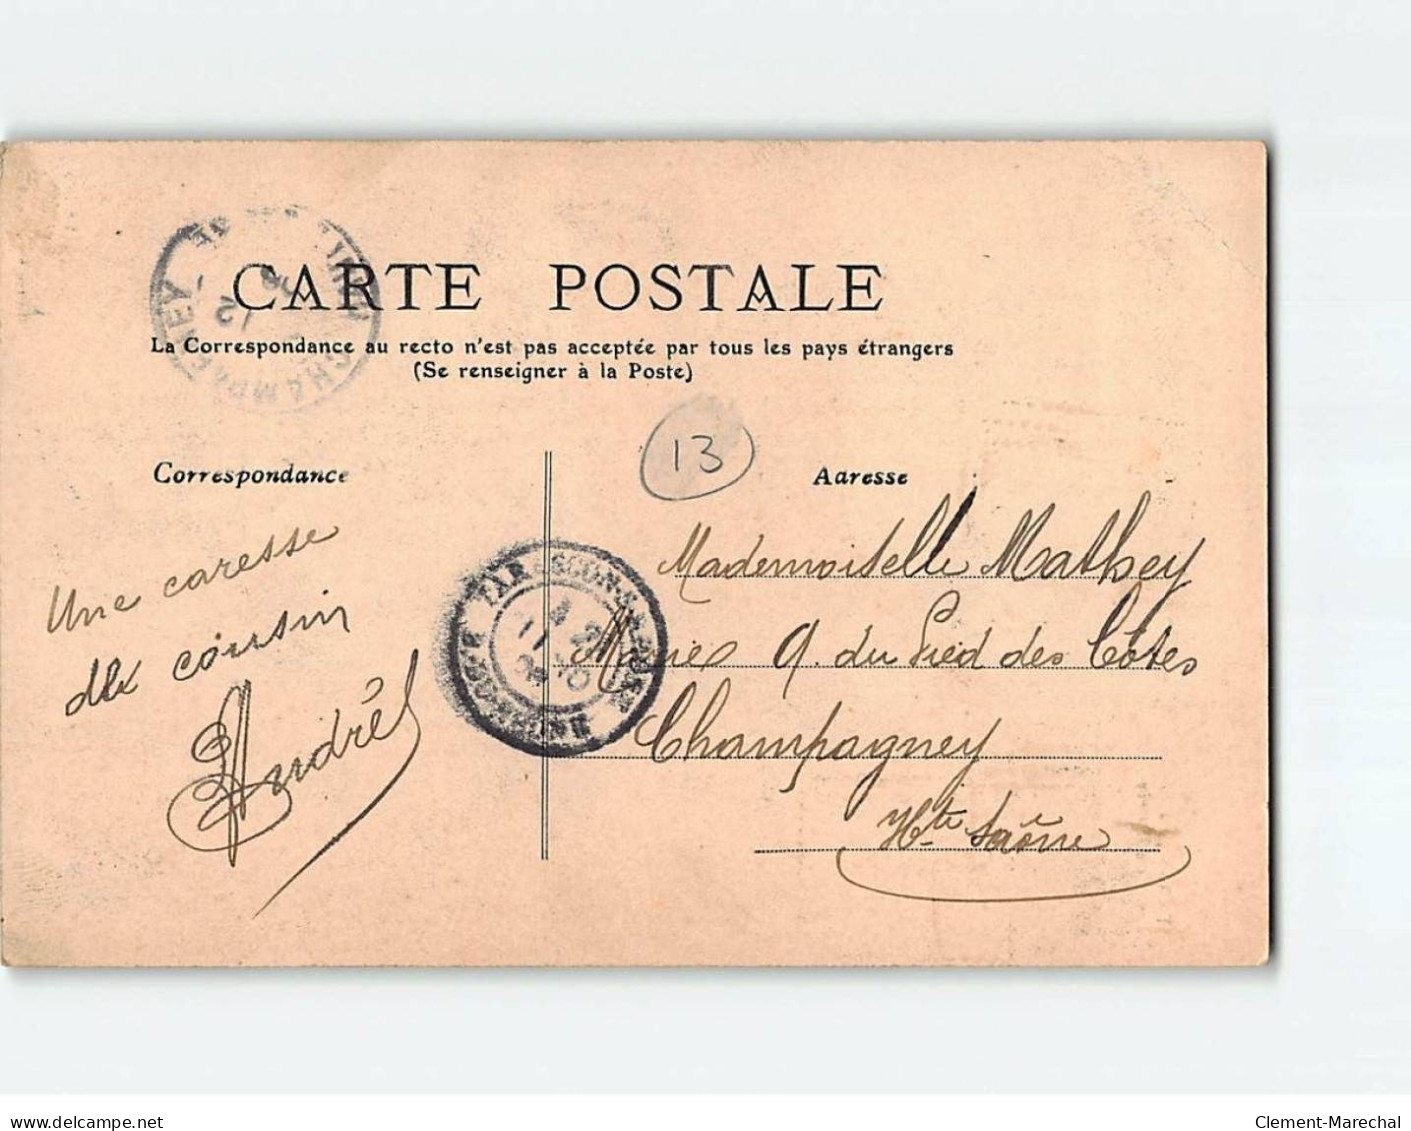 CARTE POSTALE
La Correspondance au recto n'est pas acceptée par tous les pays étrangers
(Se renseigner à la Poste)
CHAMPAGNEY
13
Correspondance
Adresse
Une caresse
du cousin
André
TARASCON-S-RHONE
BCHES-DU-RHONE
Mademoiselle Mathey
Marie q. du Pied des Côtes
Champagney
Hte Saône
www.delcampe.net
Clement-Marechal